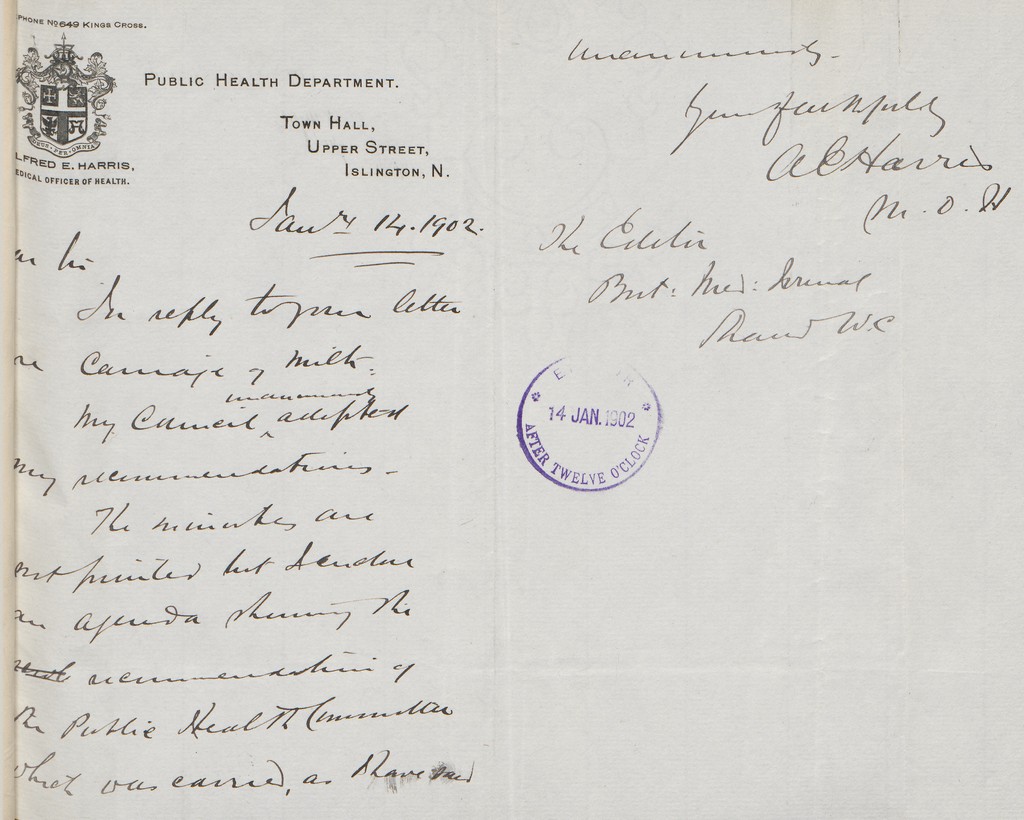 PHONE No 649 KINGS CROSS.
PUBLIC HEALTH DEPARTMENT.
TOWN HALL,
UPPER STREET,
ISLINGTON, N.
DEUS PER OMNIA
LFRED E. HARRIS,
EDICAL OFFICER OF HEALTH.
Jany 14. 1902.
ar Sir
In reply to your letter
re Carriage of Milk.
unanimously
My Council ^ adopted
my recommendations -
The minutes are
not printed but I send you
an agenda showing the
recommendation of
the Public Health Committee
which was carried, as I have said
unanimously.
Yours faithfully
A E Harris
M. O. H
The Editor
Brit: Med: Journal
Strand W.C
14 JAN. 1902
AFTER TWELVE O'CLOCK